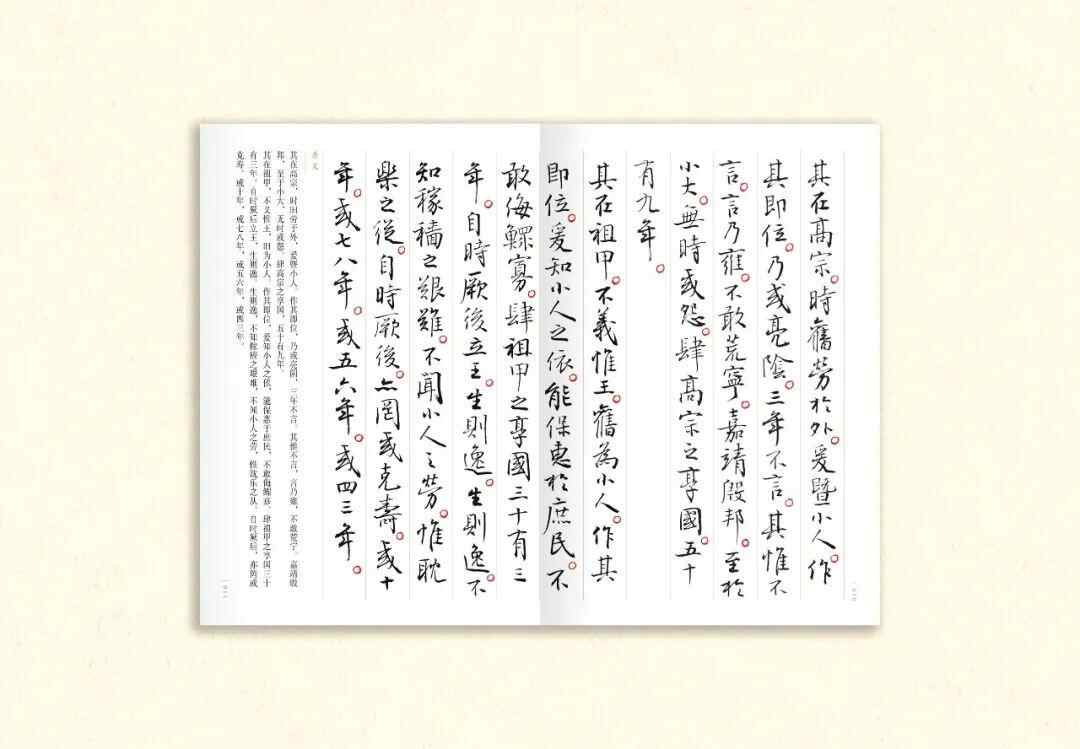 其在高宗。時舊勞於外。爰暨小人。作
其即位。乃或亮陰。三年不言。其惟不
言。言乃雍。不敢荒寧。嘉靖殷邦。至於
小大。無時或怨。肆高宗之享國。五十
有九年。
其在祖甲。不義惟王。舊為小人。作其
即位。爰知小人之依。能保惠於庶民。不
敢侮鰥寡。肆祖甲之享國三十有三
年。自時厥後立王。生則逸。生則逸。不
知稼穡之艱難。不聞小人之勞。惟耽
樂之從。自時厥後。亦罔或克壽。或十
年。或七八年。或五六年。或四三年。
其在高宗，时旧劳于外，爰暨小人。作其即位，乃或亮阴，三年不言。其惟不言，言乃雍，不敢荒宁。嘉靖殷
邦，至于小大，无时或怨。肆高宗之享国，五十有九年。
其在祖甲，不义惟王，旧为小人。作其即位，爰知小人之依，能保惠于庶民，不敢侮鳏寡。肆祖甲之享国三十
有三年。自时厥后立王，生则逸，生则逸，不知稼穑之艰难，不闻小人之劳，惟耽乐之从。自时厥后，亦罔或
克寿。或十年，或七八年，或五六年，或四三年。